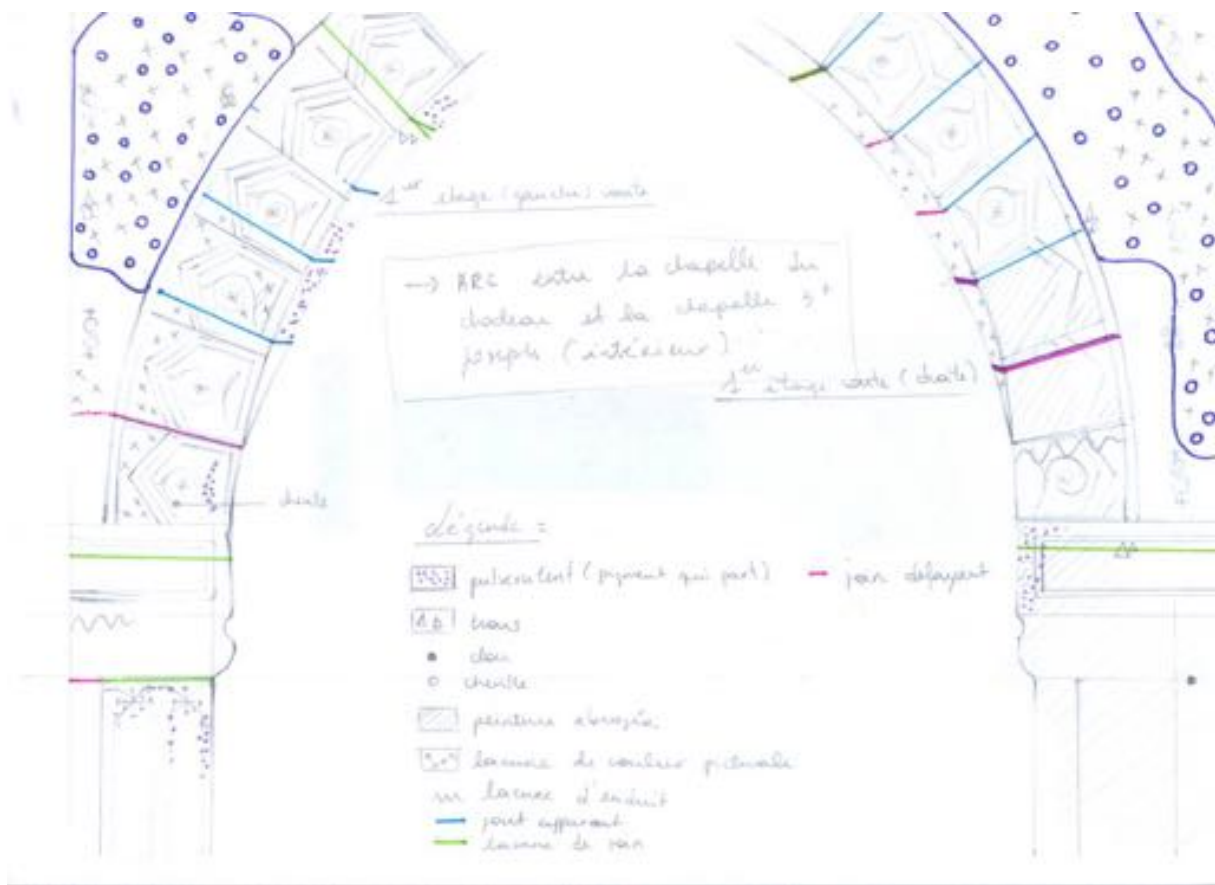 1er étage (gauche) voute
→ ARC entre la chapelle du
chateau et la chapelle St
joseph (intérieur)
1er étage voute (droite)
cheville
Légende =
pulvérulent (pigment qui part)
joan défayent
trous
clou
cheville
peinture abrogée
lacune de couleur picturale
lacune d'enduit
joint apparant
lacune de